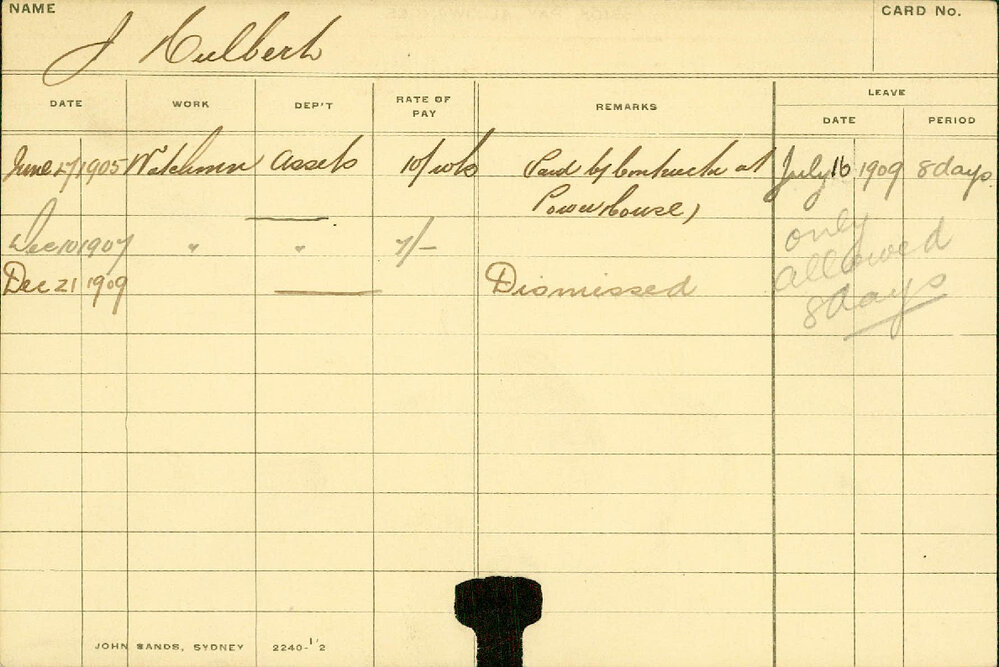 NAME
CARD No.
J Hulbert
DATE WORK DEP'T RATE OF PAY REMARKS LEAVE
DATE PERIOD
June 27 1905 Watchman Assets 10/ wk Paid by Contractor at July 16 1909 8 days
Power House)
Dec 10 1907 " " 7/- only
allowed
Dec 21 1909 Dismissed
8 days
JOHN SANDS, SYDNEY 2240-1/2